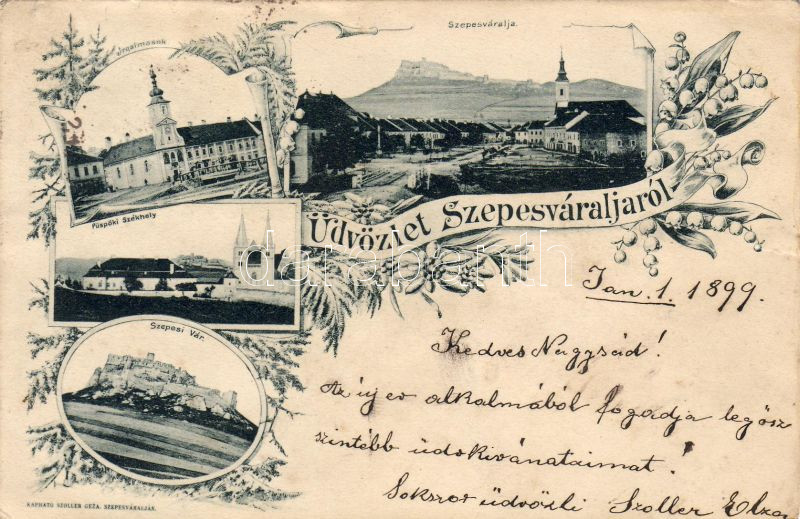 Irgalmasok
Szepesváralja.
Püspöki Székhely
Üdvözlet Szepesváraljaról
Szepesi Vár.
Jan. 1. 1899.
Kedves Nagysád!
Az új év alkalmából fogadja legősz
szintébb üdvkivánataimat!
Sokszor üdvözli Szoller Elza
KAPHATÓ SZOLLER GÉZA. SZEPESVÁRALJÁN.
darabanth.com